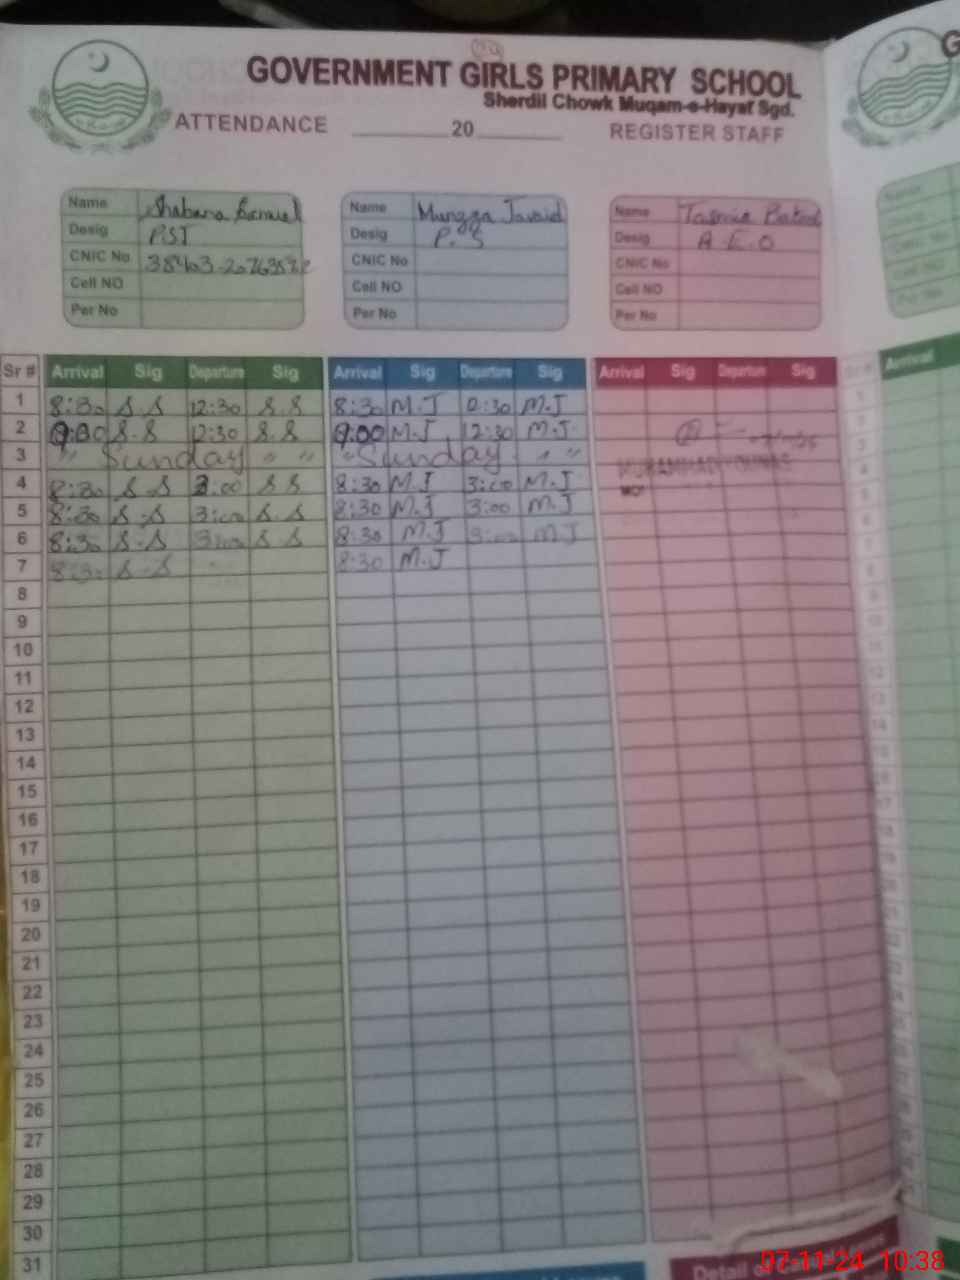 GOVERNMENT GIRLS PRIMARY SCHOOL
G
Sherdil Chowk Muqam-e-Hayat Sgd.
ATTENDANCE 20 REGISTER STAFF
Name Shabana
Desig PST
CNIC No
Cell NO
Per No
Name Javaid
Desig P.S
CNIC No
Cell NO
Per No
Name
Desig A.E.O
CNIC No
Cell NO
Per No
Sr # Arrival Sig Departure Sig Arrival Sig Departure Sig Arrival Sig Departure Sig Arrival
1 8:30 S.S 12:30 S.S 8:30 M.J M.J
2 9:00 S.S 12:30 S.S 9:00 M.J 12:30 M.J
3 " Sunday " " " Sunday " "
4 8:30 S S 3:00 S S 8:30 M.J 3:00 M.J
5 8:30 S.S 3:00 S.S 8:30 M.J 3:00 M.J
6 8:30 S.S 3:00 S S 8:30 M.J 3:00 M.J
7 8:30 S.S 8:30 M.J
8
9
10
11
12
13
14
15
16
17
18
19
20
21
22
23
24
25
26
27
28
29
30
31
MUHAMMAD
Detail of
07-11-24 10:38